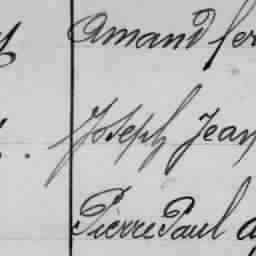 Amand fer
Joseph Jean
Pierre Paul a